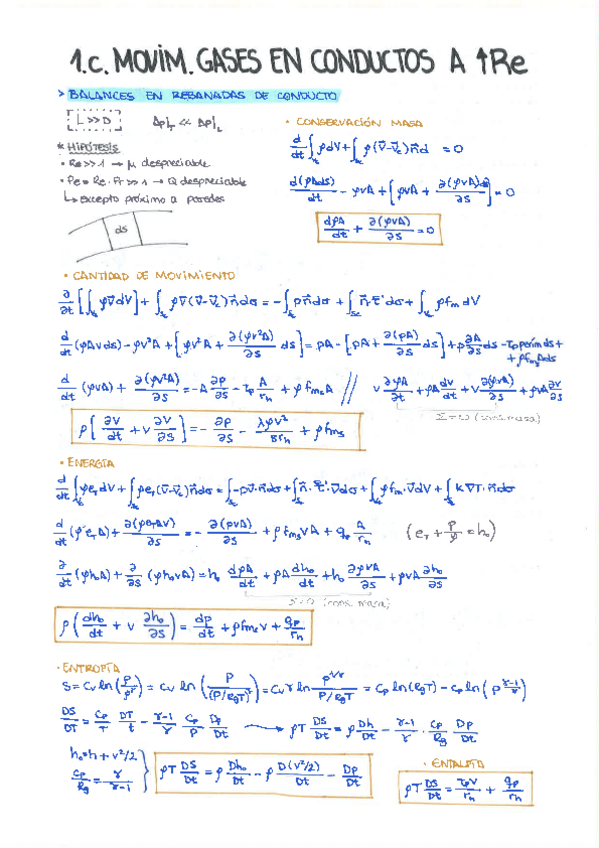 1.c. MOVIM. GASES EN CONDUCTOS A ↑Re
> BALANCES EN REBANADAS DE CONDUCTO
L >> D   Δp)_T << Δp)_L
* HIPÓTESIS
• Re >> 1 → μ despreciable
• Pe = Re · Pr >> 1 → Q despreciable
↳ excepto próximo a paredes
ds
• CONSERVACIÓN MASA
d/dt ∫ ρdV + ∫ ρ(v̄-v̄c) n̄ dσ = 0
d(ρAds)/dt - ρvA + [ρvA + ∂(ρvA)/∂s ds] = 0
dρA/dt + ∂(ρvA)/∂s = 0
• CANTIDAD DE MOVIMIENTO
∂/∂t [∫ ρv̄dV] + ∫ ρv̄(v̄-v̄c) n̄dσ = - ∫ pn̄dσ + ∫ n̄·τ̄' dσ + ∫ ρf̄m dV
d/dt (ρAvds) - ρv²A + [ρv²A + ∂(ρv²A)/∂s ds] = pA - [pA + ∂(pA)/∂s ds] + p ∂A/∂s ds - τp perím ds +
+ ρfms Ads
d/dt (ρvA) + ∂(ρv²A)/∂s = -A ∂p/∂s - τp A/rh + ρfms A // v ∂ρA/∂t + ρA dv/dt + v ∂(ρvA)/∂s + ρvA ∂v/∂s
Σ = 0 (cons. masa)
ρ [∂v/∂t + v ∂v/∂s] = - ∂p/∂s - λρv²/8rh + ρfms
• ENERGÍA
d/dt ∫ ρeT dV + ∫ ρeT (v̄-v̄c) n̄dσ = ∫ -pv̄·n̄dσ + ∫ n̄·τ̄'·v̄dσ + ∫ ρf̄m·v̄dV + ∫ k∇T·n̄dσ
d/dt (ρeT A) + ∂(ρeT Av)/∂s = - ∂(pvA)/∂s + ρfms vA + qp A/rh   (eT + p/ρ = ho)
∂/∂t (ρho A) + ∂/∂s (ρho vA) = ho dρA/dt + ρA dho/dt + ho ∂ρvA/∂s + ρvA ∂ho/∂s
Σ = 0 (cons. masa)
ρ (dho/dt + v ∂ho/∂s) = dp/dt + ρfms v + qp/rh
• ENTROPÍA
S = cv ln (p/ρ^γ) = cv ln (p/(p/RgT)^γ) = cv γ ln p^(1/γ)/(p/RgT) = cp ln(RgT) - cp ln (p^((γ-1)/γ))
DS/DT = cp/T DT/t - (γ-1)/γ cp/p Dp/Dt → ρT DS/Dt = ρ Dh/Dt - (γ-1)/γ · cp/Rg Dp/Dt
ho = h + v²/2
cp/Rg = γ/(γ-1)
ρT DS/Dt = ρ Dho/Dt - ρ D(v²/2)/Dt - Dp/Dt
• ENTALPÍA
ρT DS/Dt = τp v/rh + qp/rh